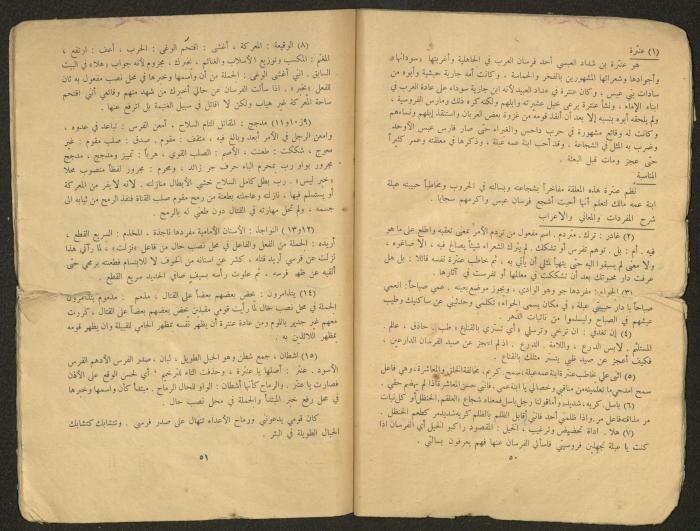 (١) عنترة
هو عنترة بن شداد العبسي أحد فرسان العرب في الجاهلية وأغربتها «سودانها»
وأجوادها وشعرائها المشهورين بالفخر والحماسة . وكانت أمه جارية حبشية وأبوه من
سادات بني عبس ، وكان عنترة في عداد العبيد لأنه ابن جارية سوداء على عادة العرب في
ابناء الإماء ، ونشأ عنترة يرعى خيل عشيرته وإبلهم ولكنه كره ذلك ومارس الفروسية ،
ولم يلحقه أبوه بنسبه إلا بعد أن أنقذ قومه من غزوة بعض العربان واستنقذ إبلهم ونساءهم
وكانت له وقائع مشهورة في حرب داحس والغبراء حتى صار فارس عبس الأوحد
وضرب به المثل في الشجاعة ، وقد أحب ابنة عمه عبلة ، وذكرها في معلقته وعمر كثيراً
حتى عجز ومات قبل البعثة .
المناسبة
نظم عنترة هذه المعلقة مفاخراً بشجاعته وبسالته في الحروب ومخاطباً حبيبته عبلة
ابنة عمه مالك لتعلم أنها أحبت أشجع فرسان عبس واكرمهم سجايا .
شرح المفردات والمعاني والاعراب
(٢) غادر : ترك . متردم . اسم مفعول من تردم الأمر بمعنى تعقبه واطلع على ما هو
فيه . أم : بل . توهم تفرس أو تشكك . لم يترك الشعراء شيئاً يصاغ فيه ، الا صاغوه ،
ولا معنى لم يسبقوا اليه حتى يتهيأ لمثلي أن يأتي به ، ثم خاطب عنترة نفسه قائلا : بل هل
عرفت دار محبوبتك بعد أن تشككت في معالمها أو تفرست في آثارها .
(٣) الجواء : مفردها جو وهو الوادي ، ويجوز موضع بعينه . عمي صباحاً : انعمي
صباحاً يا دار حبيبتي عبلة ، في مكان يسمى الجواء ، تكلمي وحدثيني عن ساكنيك وطيب
عيشهم في الصباح وليسلموا من نائبات الدهر .
(٤) إن تغدفي : ان ترخي وترسلي ، أي تستري بالقناع . طب : حاذق ، عالم .
المستلئم . لابس الدرع ، واللامة . الدرع . اذا لم أعجز عن صيد الفرسان الدارعين ،
فكيف أعجز عن صيد ظبي يتستر مثلك بالقناع .
(٥) اثني علي خاطب عنترة قابنة عمه عبلة ، سمح . كريم ، مخالقة الخلق والمعاشرة ، وهي فاعل
سمح امدحي ما تعلمينه من مناقبي وخصالي يا ابنة عمي ، فاني حسن المعاشرة فاذا لم يهضم حقي .
(٦) باسل . كريه ، شديد ، وأما قولنا رجل باسل فمعناه شجاع ، العلقم . الحنظل أو كل نبات
مر مذاقته فاعل مر . واذا ظلمني أحد فاني أقابل الظلم بالظلم كريه شديد مر كطعم الحنظل .
(٧) هلا . اداة تحضيض وترغيب ، الخيل : المقصود راكبو الخيل أي الفرسان اذا
كنت يا عبلة تجهلين فروسيتي فاسألي الفرسان عنها فهم يعرفون بسالتي .
٥٠
(٨) الوقيعة : المعركة ، أغشى : افتحم الوغى : الحرب ، أعف : ارتفع ،
المغنم : المكسب وتوزيع الأسلاب والغنائم . يخبرك ، مجزوم لأنه جواب وهلا» في البيت
السابق . انني أغشى الوغى : الجملة من أن واسمها وخبرها في محل نصب مفعول به ثان
للفعل «يخبر» . اذا سألت الفرسان عن حالي أخبرك من شهد منهم وقائعي أنني افتحم
ساحة المعركة غير هياب ولكن لا اقاتل في سبيل الغنيمة بل اترفع عنها .
(٩و١٠و١١) مدجج : المقاتل التام السلاح ، أمعن الفرس : تباعد في عدوه ،
وامعن الرجل في الأمر أبعد وبالغ فيه ، مثقف : مقوم . صدق : صلب مقوم : غير
معوج ، شككت : طعنت ، الأصم : الصلب القوي ، هرباً : تمييز ومدجج . مدجج
مجرور بواو رب ، ممحرم الباء حرف جر زائد ، ومحرم : مجرور لفظاً منصوب محلا
«خبر ليس» . رب بطل كامل السلاح خشي الأبطال منازلته ، لانه لا يفر من المعركة
أو يستسلم فيها ، نازلته وعاجلته بطعنة من رمح مقوم صلب القناة فنفذ الرمح من ثيابه الى
جسمه ، ولم تحل مهارته في القتال دون طعني له بالرمح .
(١٢و١٣) النواجذ : الأسنان الأمامية مفردها ناجذة ، المخذم . السريع القطع .
أريده : الجملة من الفعل والفاعل في محل نصب حال من فاعل «نزلت» ، لما رآني هذا
نزلت عن فرسي أريد قتله ، كشر عن اسنانه من الخوف لا للابتسام فطعنته برمحي حتى
ألقيه عن ظهر فرسه ، ثم علوت رأسه بسيف صافي الحديد سريع القطع .
(١٤) يتذامرون : يحض بعضهم بعضاً على القتال ، مذمم : مذموم يتذامرون
الجملة في محل نصب حال لما رأيت قومي مقبلين بحض بعضهم بعضاً على القتال ، كررت
معهم غير جدير باللوم ومن عادة عنترة أن يظهر نفسه بمظهر الحامي للقبيلة وان يظهر قومه
بمظهر اللائذين به .
(١٥) اشطان ، جمع شطن وهو الحبل الطويل ، لبان . صدر الفرس الأدهم الفرس
الأسود . عنتر : أصلها يا عنترة ، وحذفت التاء للترخيم ، أي لحسن الوقع على الأذن
فصارت يا عنتر . والرماح كأنها أشطان : الواو للحال الرماح . مبتدأ كأن واسمها وخبرها
في محل رفع خبر المبتدأ والجملة في محل نصب حال .
كان قومي يدعونني ورماح الأعداء تنهال على صدر فرسي . وتتشابك كتشابك
الحبال الطويلة في البئر .
٥١